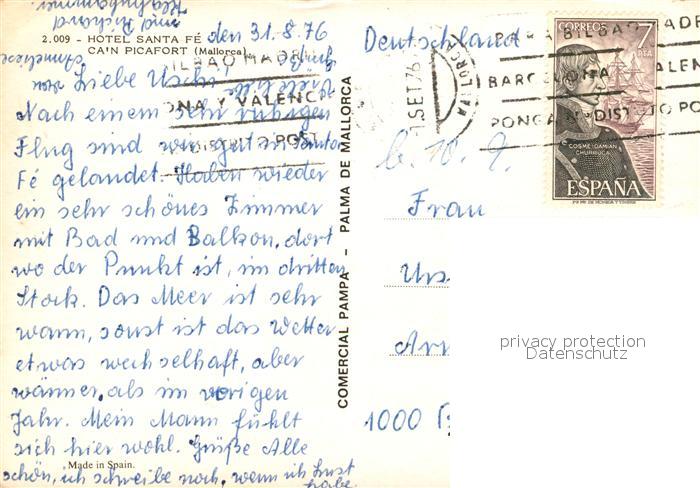 2.009 - HOTEL SANTA FÉ
CA'N PICAFORT (Mallorca)
den 31.8.76
Liebe Uschi
Nach einem sehr ruhigen
Flug sind wir gut in Santa
Fé gelandet. Haben wieder
ein sehr schönes Zimmer
mit Bad und Balkon, dort
wo der Punkt ist, im dritten
Stock. Das Meer ist sehr
warm, sonst ist das Wetter
etwas wechselhaft, aber
wärmer, als im vorigen
Jahr. Mein Mann fühlt
sich hier wohl. Grüße Alle
schön, ich schreibe noch, wenn ich Lust
habe.
Made in Spain.
Viele
von
Anneliese
und Richard
COMERCIAL PAMPA - PALMA DE MALLORCA
BILBAO MADRID
BARCELONA Y VALENCIA
PONGA Nº DISTRITO POSTAL
1 SET 76
CORREOS 7 PTA
COSME DAMIAN
CHURRUCA
ESPAÑA
Deutschland
b. W. g.
Frau
Urs
1000
privacy protection
Datenschutz